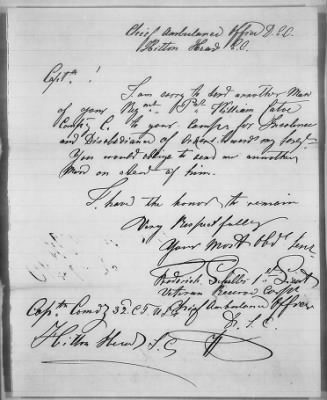 Chief Ambulance Office D.S.C.
Hilton Head S.C.
Capt !
I am sorry to send another Man
of your Regmt Pvt William
Compy C. to your Camp for Insolence
and Disobediance of Orders.
You would oblige to send me annother
Man on stead of him.
I have the honor to remain
Very Respectfully
Your Most Obdt Serv
Frederick 1st Lieut
Veteran Reserve Corps
Capt Comdg 32 C.T. Chief Ambulance Officer
D. S. C.
Hilton Head S.C